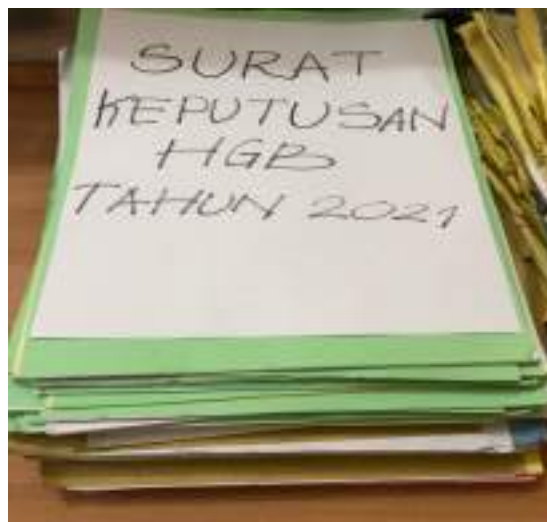 SURAT
KEPUTUSAN
HGB
TAHUN 2021